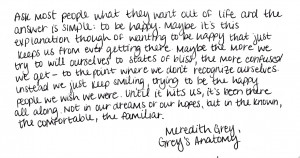 Ask most people what they want out of life and the
answer is simple- to be happy. Maybe it's this
explanation though of wanting to be happy that just
keeps us from ever getting there. Maybe the more we
try to will ourselves to states of bliss, the more confused
we get - to the point where we don't recognize ourselves.
Instead we just keep smiling, trying to be the happy
people we wish we were. Until it hits us, it's been there
all along. Not in our dreams or our hopes, but in the known,
the comfortable, the familiar.
Meredith Grey,
Grey's Anatomy